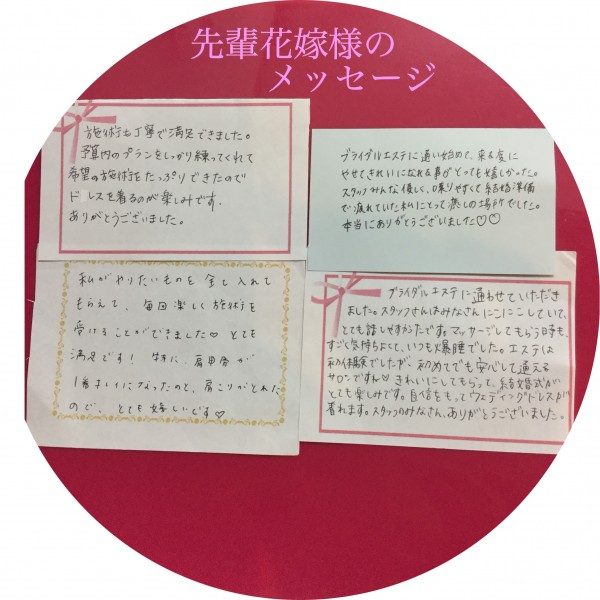 先輩花嫁様の
メッセージ
施術も丁寧で満足できました。
予算内のプランをしっかり練ってくれて
希望の施術をたっぷりできたので
ドレスを着るのが楽しみです。
ありがとうございました。
ブライダルエステに通い始めて、来る度に
やせてきれいになれる事がとっても嬉しかった。
スタッフみんな優しく、喋りやすくて結婚準備
で疲れていた私にとって癒しの場所でした。
本当にありがとうございました♡
私がやりたいものを全し入れて
もらえて、毎回楽しく施術を
受けることができました♡とても
満足です！特に、肩甲骨が
1番キレイになったのと、肩こりがとれた
ので、とても嬉しいです♡
ブライダルエステに通わせていただき
ました。スタッフさんはみなさんにこにこしていて、
とても話しやすかったです。マッサージしてもらう時も、
すごく気持ちよくて、いつも爆睡でした。エステは
初体験でしたが、初めてでも安心して通える
サロンですよ♡きれいにしてもらって、結婚式が
とても楽しみです。自信をもってウェディングドレスが
着れます。スタッフのみなさん、ありがとうございました。